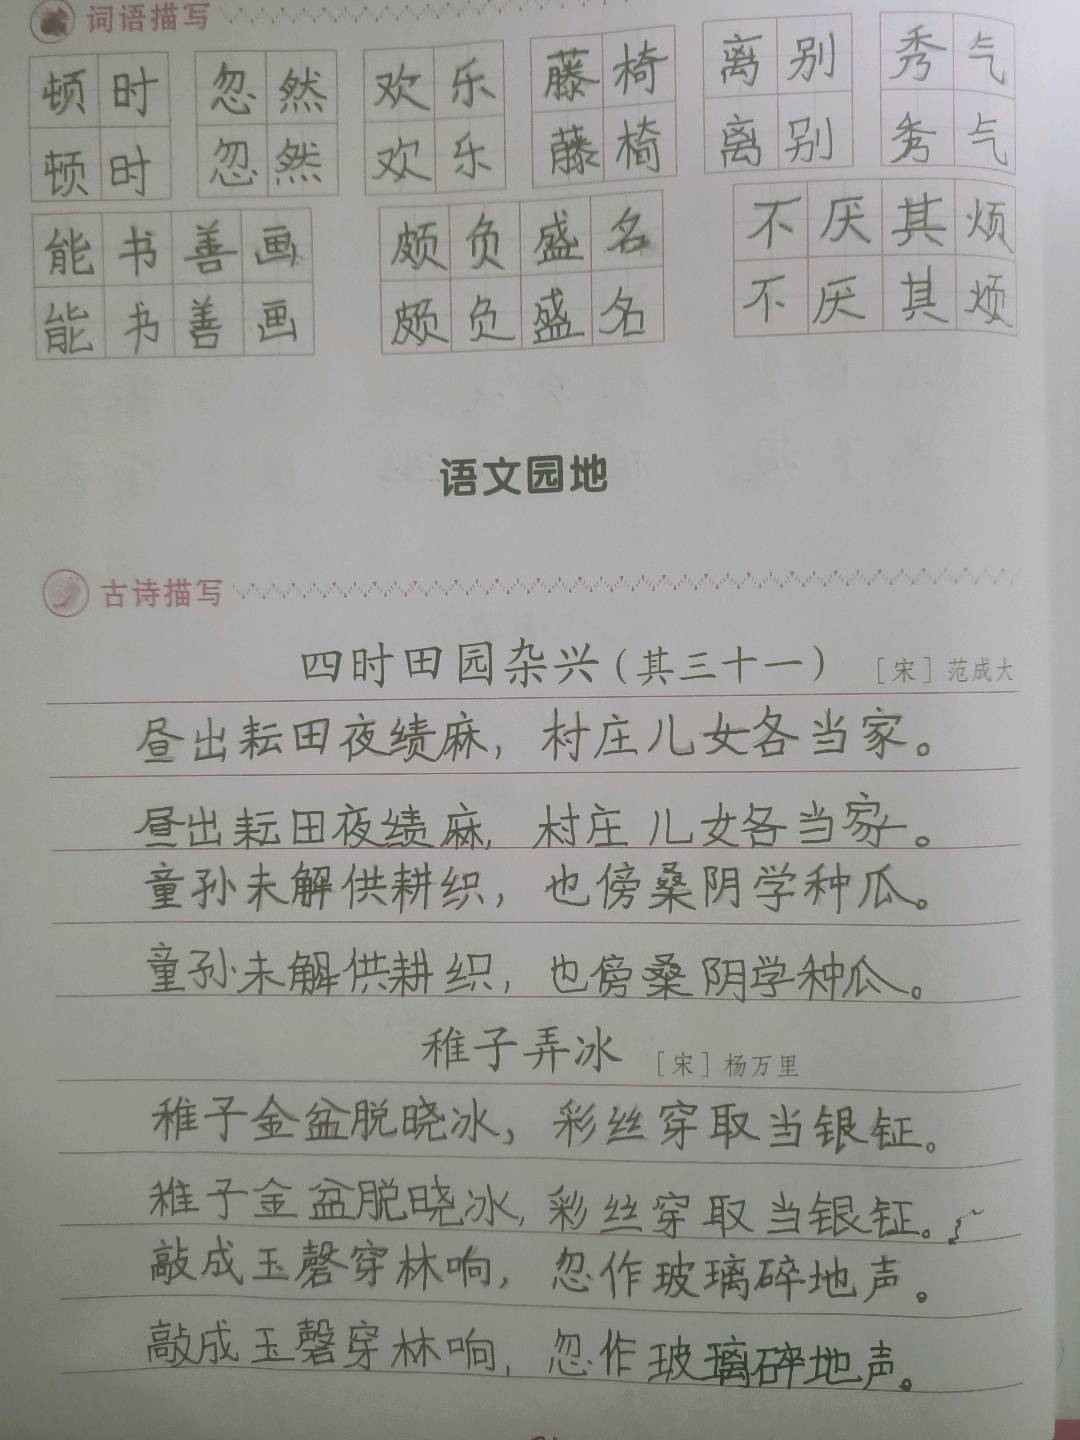 词语描写
顿时 忽然 欢乐 藤椅 离别 秀气
顿时 忽然 欢乐 藤椅 离别 秀气
能书善画 颇负盛名 不厌其烦
能书善画 颇负盛名 不厌其烦
语文园地
古诗描写
四时田园杂兴(其三十一) [宋]范成大
昼出耘田夜绩麻，村庄儿女各当家。
昼出耘田夜绩麻，村庄儿女各当家。
童孙未解供耕织，也傍桑阴学种瓜。
童孙未解供耕织，也傍桑阴学种瓜。
稚子弄冰 [宋]杨万里
稚子金盆脱晓冰，彩丝穿取当银钲。
稚子金盆脱晓冰，彩丝穿取当银钲。
敲成玉磬穿林响，忽作玻璃碎地声。
敲成玉磬穿林响，忽作玻璃碎地声。